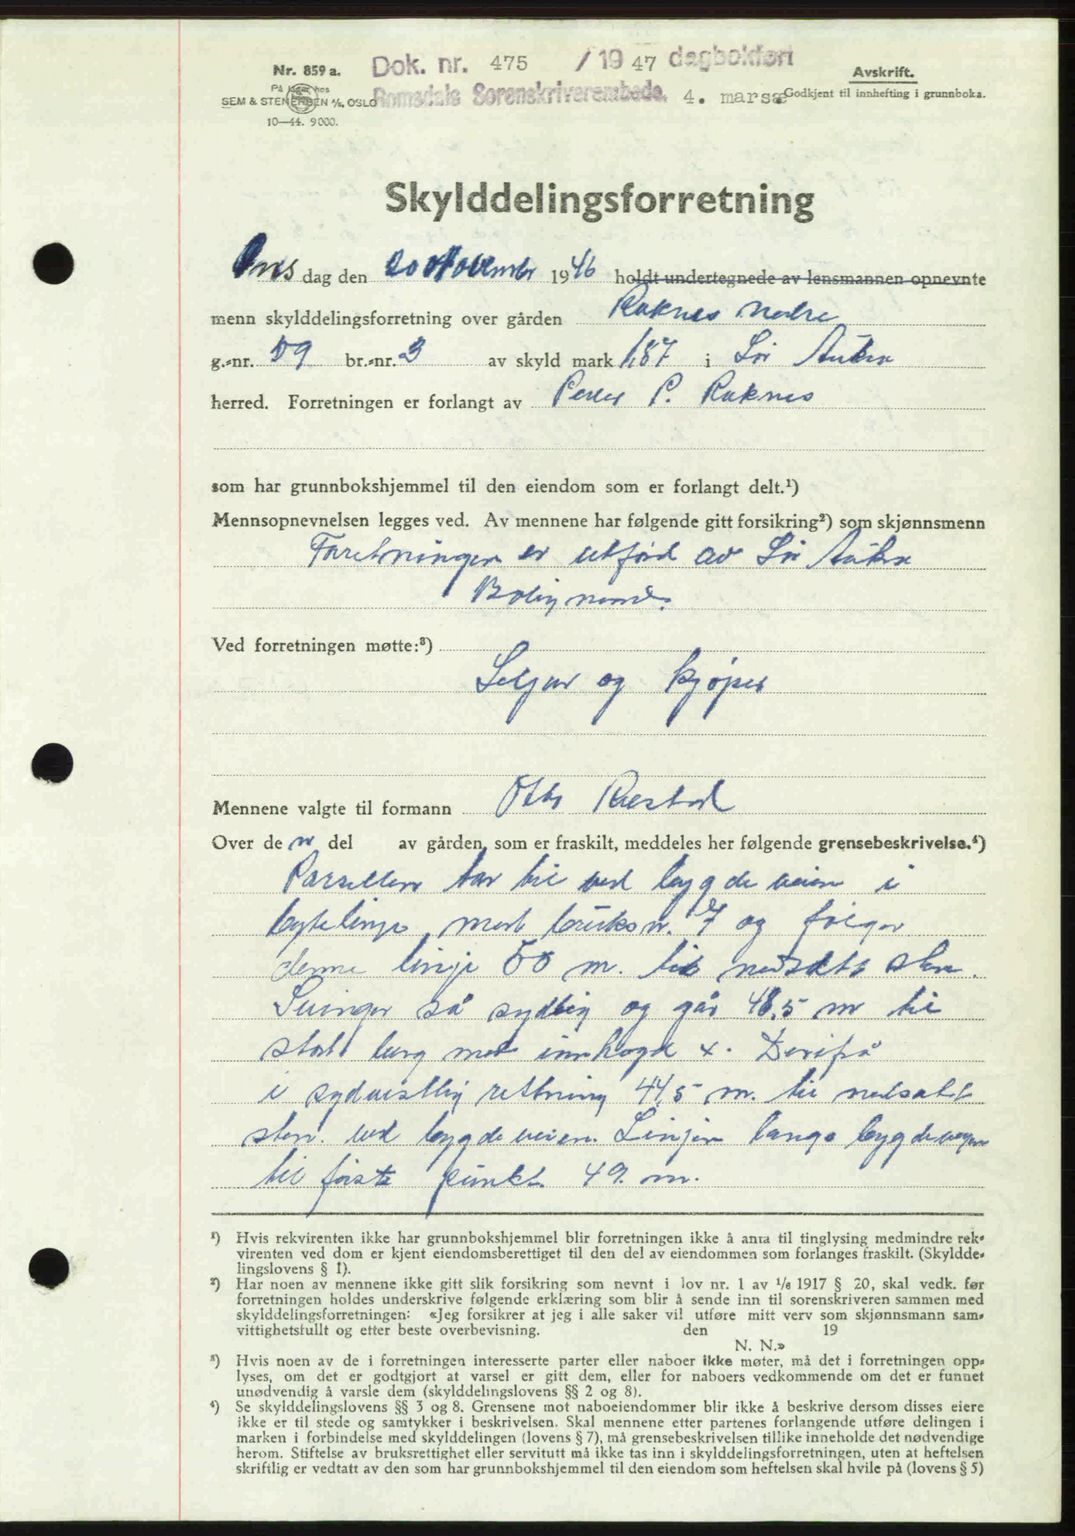 Nr. 859 a.
SEM & STENERSEN A/S, OSLO
10—44. 9000.
Dok. nr. 475 / 19 47 dagbokført
Romsdals Sorenskriverembede. 4. mars
Avskrift.
Godkjent til innhefting i grunnboka.
Skylddelingsforretning
Ons dag den 20 November 1946 holdt undertegnede av lensmannen opnevnte
menn skylddelingsforretning over gården Raknes nedre
g.-nr. 59 br.-nr. 3 av skyld mark 1,87 i Sør Aukra
herred. Forretningen er forlangt av Peder P. Raknes
som har grunnbokshjemmel til den eiendom som er forlangt delt.¹)
Mennsopnevnelsen legges ved. Av mennene har følgende gitt forsikring²) som skjønnsmenn
Forretningen er utførd av Sør Aukra
Bolignemd.
Ved forretningen møtte:³)
Selger og kjøper
Mennene valgte til formann Otto Røstad
Over de n del av gården, som er fraskilt, meddeles her følgende grensebeskrivelse.⁴)
Parsellen tar til ved bygdeveien i
bytelinje med bruksnr. 7 og følger
denne linje 50 m. til nedsatt sten.
Svinger så sydlig og går 48,5 m til
stort berg med innhogd x. Derifrå
i sydvestlig rettning 44,5 m. til nedsatt
sten ved bygdeveien. Linjen langs bygdevegen
til første punkt 49 m.
¹) Hvis rekvirenten ikke har grunnbokshjemmel blir forretningen ikke å anta til tinglysing medmindre rek-
virenten ved dom er kjent eiendomsberettiget til den del av eiendommen som forlanges fraskilt. (Skyldde-
lingslovens § 1).
²) Har noen av mennene ikke gitt slik forsikring som nevnt i lov nr. 1 av 1/6 1917 § 20, skal vedk. før
forretningen holdes underskrive følgende erklæring som blir å sende inn til sorenskriveren sammen med
skylddelingsforretningen: «Jeg forsikrer at jeg i alle saker vil utføre mitt verv som skjønnsmann sam-
vittighetsfullt og etter beste overbevisning. den 19
N. N.»
³) Hvis noen av de i forretningen interesserte parter eller naboer ikke møter, må det i forretningen opp-
lyses, om det er godtgjort at varsel er gitt dem, eller for naboers vedkommende om det er funnet
unødvendig å varsle dem (skylddelingslovens §§ 2 og 8).
⁴) Se skylddelingslovens §§ 3 og 8. Grensene mot naboeiendommer blir ikke å beskrive dersom disses eiere
ikke er til stede og samtykker i beskrivelsen. Skal mennene etter partenes forlangende utføre delingen i
marken i forbindelse med skylddelingen (lovens § 7), må grensebeskrivelsen tillike inneholde det nødvendige
herom. Stiftelse av bruksrettighet eller servitutt må ikke tas inn i skylddelingsforretningen, uten at heftelsen
skriftlig er vedtatt av den som har grunnbokshjemmel til den eiendom som heftelsen skal hvile på (lovens § 5)